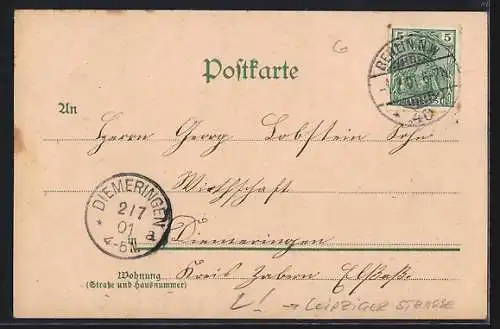 5 5
BERLIN N.W.
* 40
Postkarte
An
Herrn Georg Lobstein Sohn
Wirthschaft
DIEMERINGEN
2/7
01
4-5N. a
*
in Diemeringen
Wohnung
(Straße und Hausnummer)
Kreis Zabern Elsaß.
L! → LEIPZIGER STRASSE